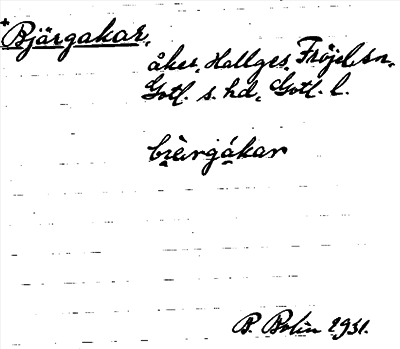 +Bjärgakar,
åker, Hallges, Fröjel sn,
Gotl. s. hd, Gotl. l.
bi̯èrgákar
B. Bolin 1931.